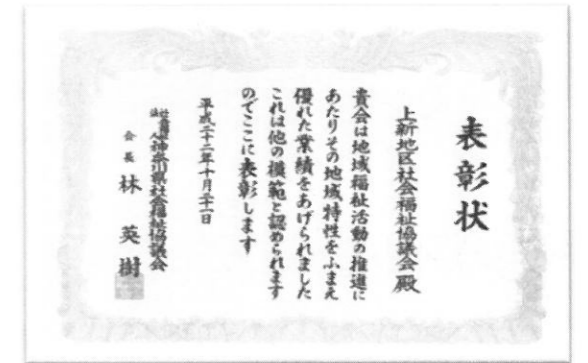 表彰状
上新地区社会福祉協議会殿
貴会は地域福祉活動の推進に
あたりその地域特性をふまえ
優れた業績をあげられました
これは他の模範と認められます
のでここに表彰します
平成二十二年十月二十一日
社会福祉法人神奈川県社会福祉協議会
会長 林英樹